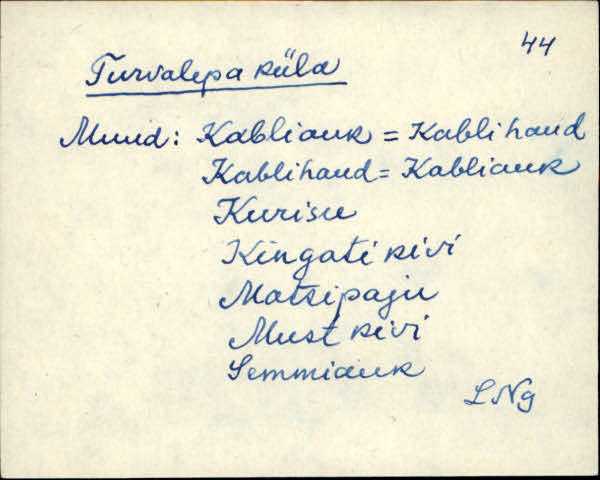 44
Turvalepa küla
Muud: Kabliauk = Kablihaud
Kablihaud = Kabliauk
Kurisu
Kingati kivi
Matsipaju
Must kivi
Semmiauk
LNg